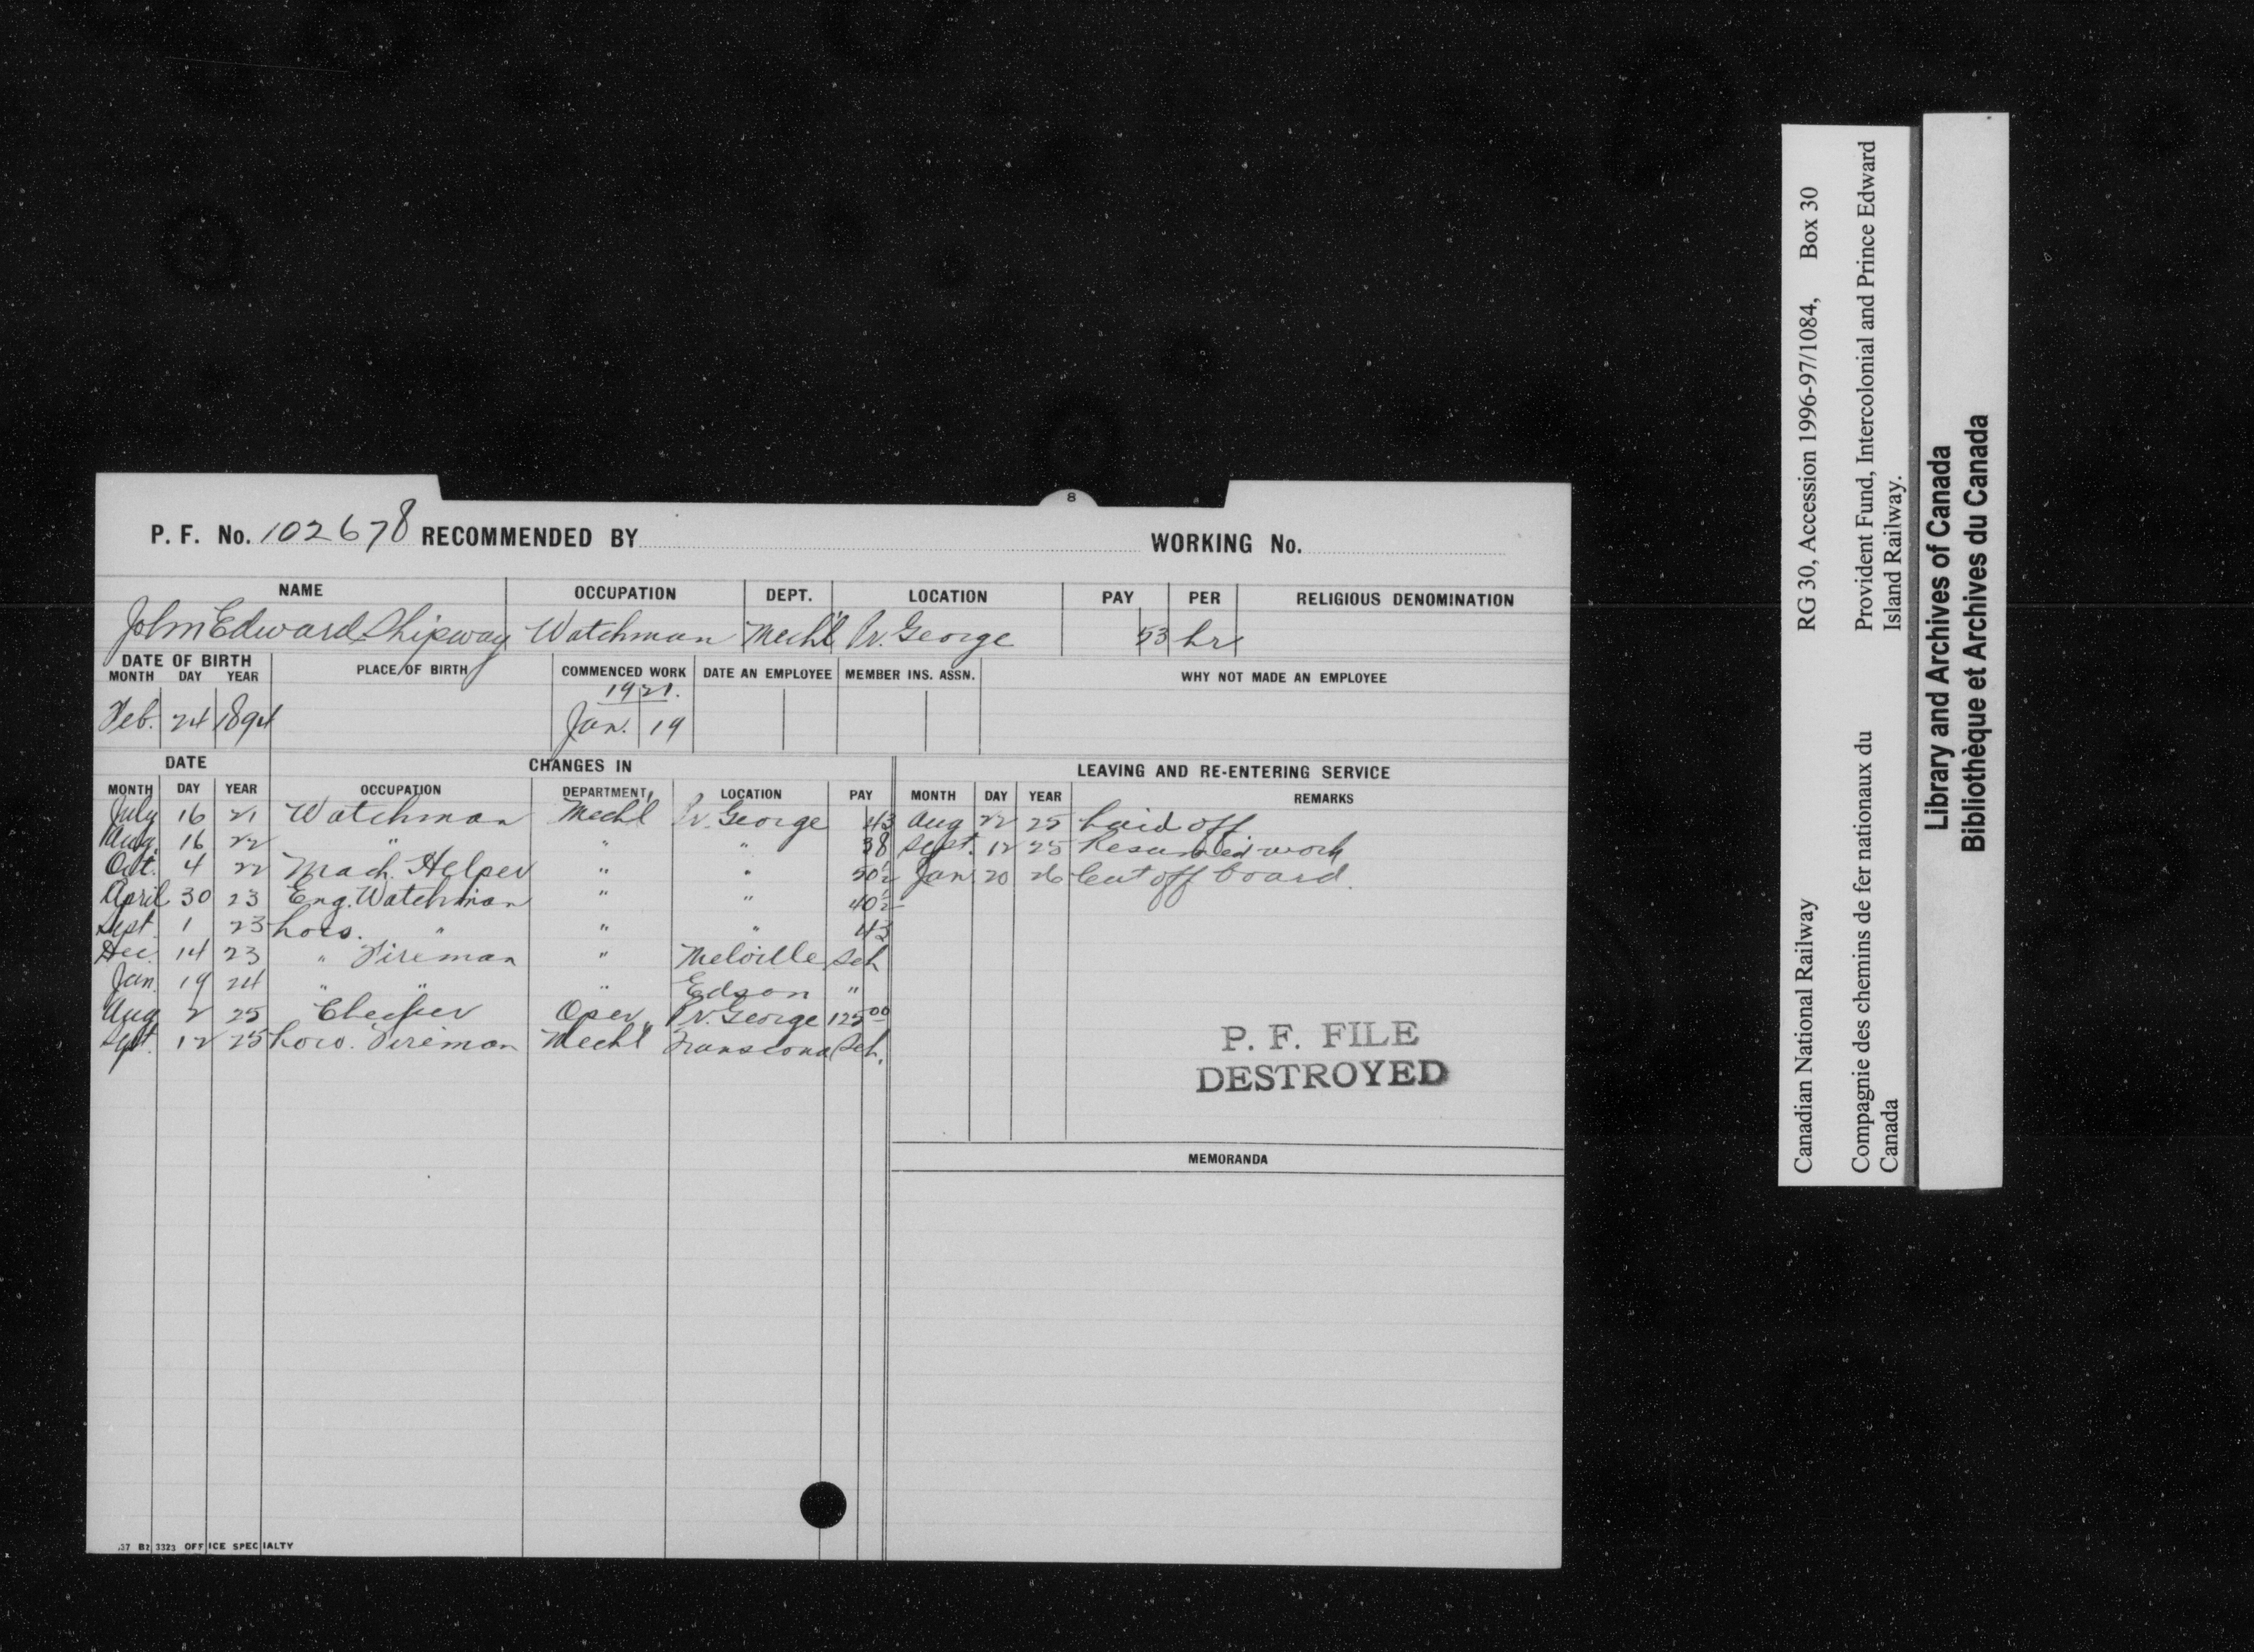 8
P. F. No. 102678 RECOMMENDED BY WORKING No.
NAME OCCUPATION DEPT. LOCATION PAY PER RELIGIOUS DENOMINATION
John Edward Shipway Watchman Mech'l Pr. George 53 hr
DATE OF BIRTH PLACE OF BIRTH COMMENCED WORK DATE AN EMPLOYEE MEMBER INS. ASSN. WHY NOT MADE AN EMPLOYEE
MONTH DAY YEAR
1921.
Feb. 24 1894 Jan. 19
DATE CHANGES IN LEAVING AND RE-ENTERING SERVICE
MONTH DAY YEAR OCCUPATION DEPARTMENT LOCATION PAY MONTH DAY YEAR REMARKS
July 16 21 Watchman Mech'l Pr. George 43 Aug 22 25 Laid off
Aug. 16 22 " " " 38 Sept. 12 25 Resumed work
Oct. 4 22 Mach. Helper " " 50½ Jan. 20 26 Cut off board.
April 30 23 Eng. Watchman " " 40½
Sept. 1 23 Loco. " " " 43
Dec. 14 23 " Fireman " Melville Sch
Jan. 19 24 " " " Edson "
Aug 2 25 Checker Oper. Pr. George 125 00
Sept. 12 25 Loco. Fireman Mech'l Transcona Sch.
P. F. FILE
DESTROYED
MEMORANDA
.37 B2 3323 OFFICE SPECIALTY
Canadian National Railway RG 30, Accession 1996-97/1084, Box 30
Compagnie des chemins de fer nationaux du Canada
Provident Fund, Intercolonial and Prince Edward Island Railway.
Library and Archives of Canada
Bibliothèque et Archives du Canada